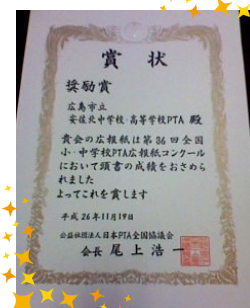 賞状
奨励賞
広島市立
安佐北中学校・高等学校PTA 殿
貴会の広報紙は第36回全国
小・中学校PTA広報紙コンクール
において頭書の成績をおさめら
れました
よってこれを賞します
平成26年11月19日
公益社団法人日本PTA全国協議会
会長 尾上浩一